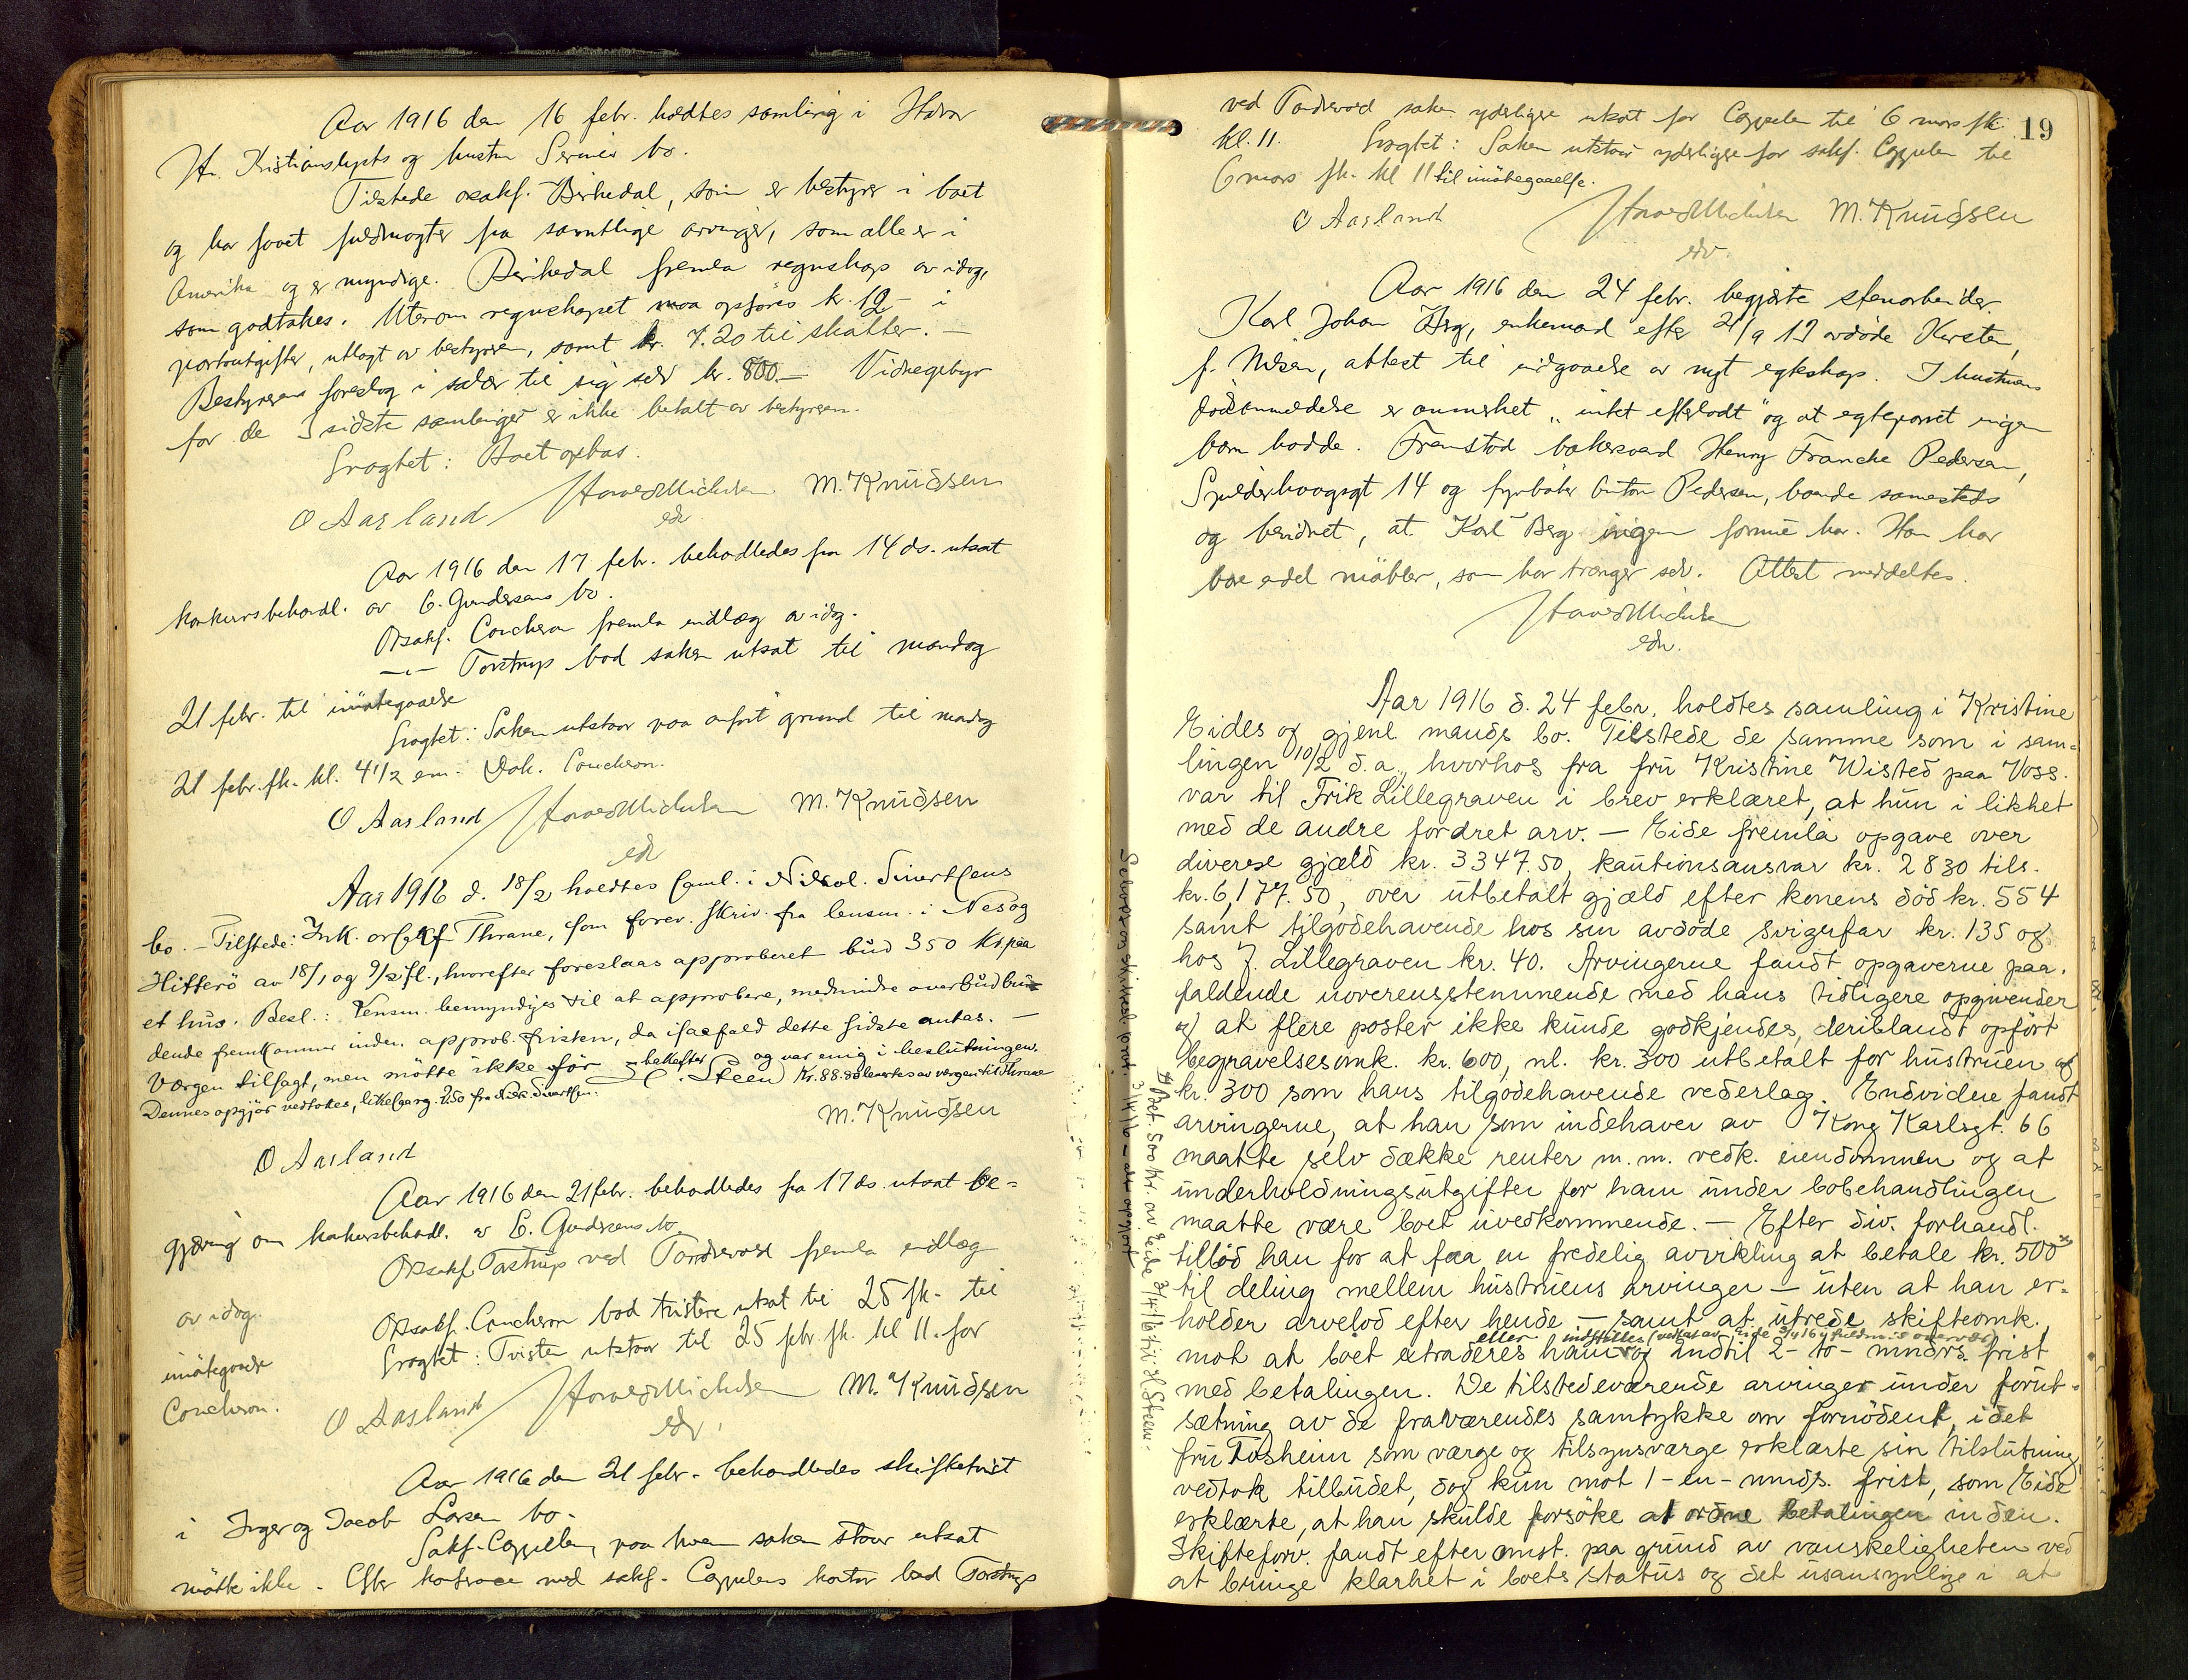 Aar 1916 den 16 febr. holdtes samling i Halvor
H. Kristianslysts og hustru Serines bo.
Tilstede osakf. Birkedal, som er bestyrer i boet
og har faaet fuldmagter fra samtlige arvinger, som alle er i
Amerika og er myndige. Birkedal fremla regnskap av idag,
som godtakes. Utenom regnskapet maa opføres kr. 12 - i
portoutgifter, utlagt av bestyreren, samt kr. 7.20 til skatter. -
Bestyreren foreslog i salær til sig selv kr. 800.- Vidnegebyr
for de 3 sidste samlinger er ikke betalt av bestyreren.
Sragtet: Boet optas.
O Aarland M. Knudsen
edv
Aar 1916 den 17 febr. behandledes fra 14 ds. utsat
konkursbehandl. av E. Gundersens bo.
Osakf. Coucheron fremla indlæg av idag.
-"- Torstrup bad saken utsat til mandag
21 febr. til imøtegaaelse
Sragtet: Saken utstaar paa anført grund til mandag
21 febr. fk. kl. 4 1/2 em. Dok. Coucheron.
O Aarland M. Knudsen
edv
Aar 1916 d. 18/2 holdtes saml. i Nikol. Sivertsens
bo. - Tilstede: Ink. orsakf Thrane, som forev. skriv. fra lensm. i Nes og
Hitterö av 18/1 og 9/2 fl., hvorefter foreslaas approberet bud 350 kr paa
et hus. Besl.: Lensm. bemyndiges til at approbere, medmindre overbud bin-
dende fremkommer inden approb. fristen, da isaafald dette sidste antas. -
Værgen tilsagt, men mötte ikke för bekefter og var enig i beslutningen.
Steen) Kr. 88.80 levertes av vergen til Thrane
Dennes opgjör vedtokes, likesaa rg. 250 fra Nik. Sivertsen.
M. Knudsen
O Aarland
Aar 1916 den 21 febr. behandledes fra 17 ds. utsat be-
gjæring om konkursbehandl. av E. Gundersens bo
Osakf. Torstrup ved Tøndervold fremla indlæg
av idag.
Osakf. Coucheron bad tvisten utsat til 25 fk. til
imøtegaaelse
Sragtet: Tvisten utstaar til 25 febr. fk. kl 11. for
Coucheron.
O Aarland M. Knudsen
edv.
Aar 1916 den 21 febr. behandledes skiftetvist
i Inger og Jacob Larsen bo.
Sakf. Cappelen, paa hvem saken staar utsat
møtte ikke. Efter konferance med sakf. Cappelens kontor bad Torstrup
19
ved Tøndervold saken yderligere utsat for Cappelen til 6 mars fk.
kl. 11. Sragtet: Saken utstaar yderligere for sakf. Cappelen til
6 mars fk. kl 11 til imøtegaaelse.
O Aarland M. Knudsen
edv.
Aar 1916 den 24 febr. begjærte stenarbeider
Karl Johan Berg, enkemand efter 21/9 13 avdøde Kirsten,
f. Nilsen, attest til indgaaelse av nyt egteskap. I hustruens
dødsanmeldelse er anmerket „intet efterlodt" og at egteparret ingen
barn hadde. Fremstod bakersvend Henry Francke Pedersen,
Spelderhaugsgt 14 og fyrbøter Anton Pedersen, boende samesteds
og bevidnet, at Karl Berg ingen formue har. Han har
bare endel møbler, som han trænger selv. Attest meddeltes.
edv.
Aar 1916 d. 24 febr. holdtes samling i Kristine
Eides og gjenl. mands bo. Tilstede de samme som i sam-
lingen 10/2 d.a., hvorhos fra fru Kristine Wisted paa Voss.
var til Frik Lillegraven i brev erklæret, at hun i likhet
med de andre fordret arv. - Eide fremla opgave over
diverse gjæld kr. 3347.50, kautionsansvar kr. 2830 tils.
kr. 6,177.50, over utbetalt gjæld efter konens död kr. 554
samt tilgodehavende hos sin avdöde svigerfar kr. 135 og
hos J. Lillegraven kr. 40. Arvingerne fandt opgaverne paa-
faldende uoverensstemmende med hans tidligere opgivender
og at flere poster ikke kunde godkjendes, deriblandt opfört
begravelsesomk. kr. 600, nl. kr. 300 utbetalt for hustruen og
kr. 300 som hans tilgodehavende vederlag. Endvidere fandt
arvingerne, at han som indehaver av Kong Karlsgt. 66
maatte selv dække renter m. m. vedk. eiendommen og at
underholdningsutgifter for ham under bobehandlingen
maatte være boet uvedkommende. - Efter div. forhandl.
tillöd han for at faa en fredelig avvikling at betale kr. 500 x)
til deling mellem hustruens arvinger - uten at han er-
holder arvelod efter hende - samt at utrede skifteomk.
eller indstilles (vedtat av Eide
mot at boet extraderes ham og indtil 2 - to - mndrs. frist
med betalingen. De tilstedeværende arvinger under forut-
sætning av de fraværendes samtykke om fornödent, idet
fru Tosheim som værge og tilsynsværge erklærte sin tilslutning,
vedtok tilbudet, dog kun mot 1 - en - mnds. frist, som Eide
erklærte, at han skulde forsöke at ordne betalingen inden.
Skifteforv. fandt efter omst. paa grund av vanskeligheten ved
at bringe klarhet i boets status og det usansynlige i at
x) Bet. 500 kr. av Eide 3/4/16 til H. Steen -
3/4/16 - dec opgjort